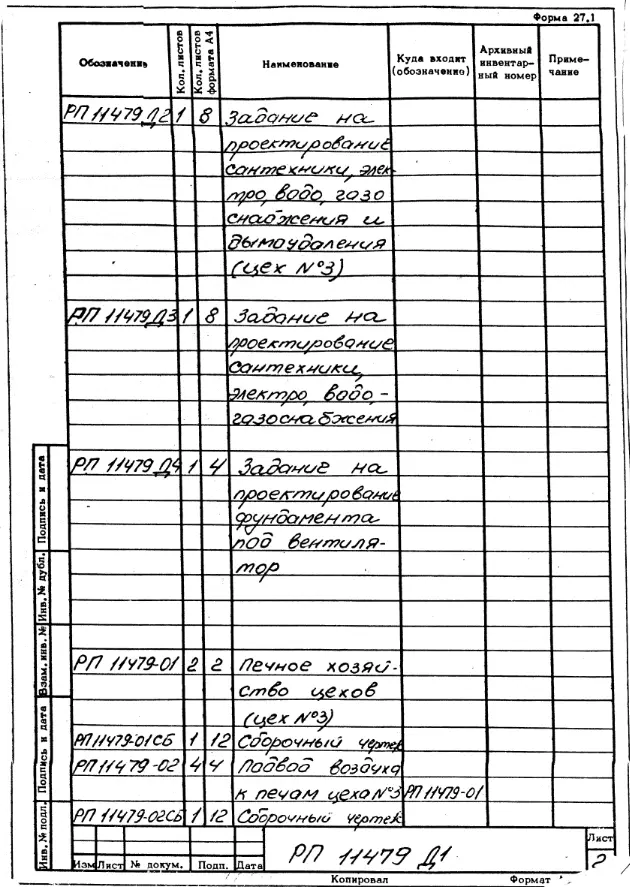 Форма 27.1
Обозначение
Кол. листов
Кол. листов формата А4
Наименование
Куда входит (обозначение)
Архивный инвентарный номер
Примечание
РП 11479 Д2 1 8 Задание на
проектирование
сантехники, элек-
тро, водо, газо
снабжения и
дымоудаления
(цех №3)
РП 11479 Д3 1 8 Задание на
проектирование
сантехники,
электро, водо,-
газоснабжения
РП 11479 Д4 1 4 Задание на
проектирование
фундамента
под вентиля-
тор
РП 11479-01 2 2 Печное хозяй-
ство цехов
(цех №3)
РП 11479-01СБ 1 12 Сборочный чертеж
РП 11479-02 4 4 Подвод воздуха
к печам цеха №3 РП 11479-01
РП 11479-02СБ 1 12 Сборочный чертеж
Подпись и дата
Инв. № дубл.
Взам. инв. №
Подпись и дата
Инв. № подл.
Изм Лист № докум. Подп. Дата
РП 11479 Д1
Лист
2
Копировал Формат